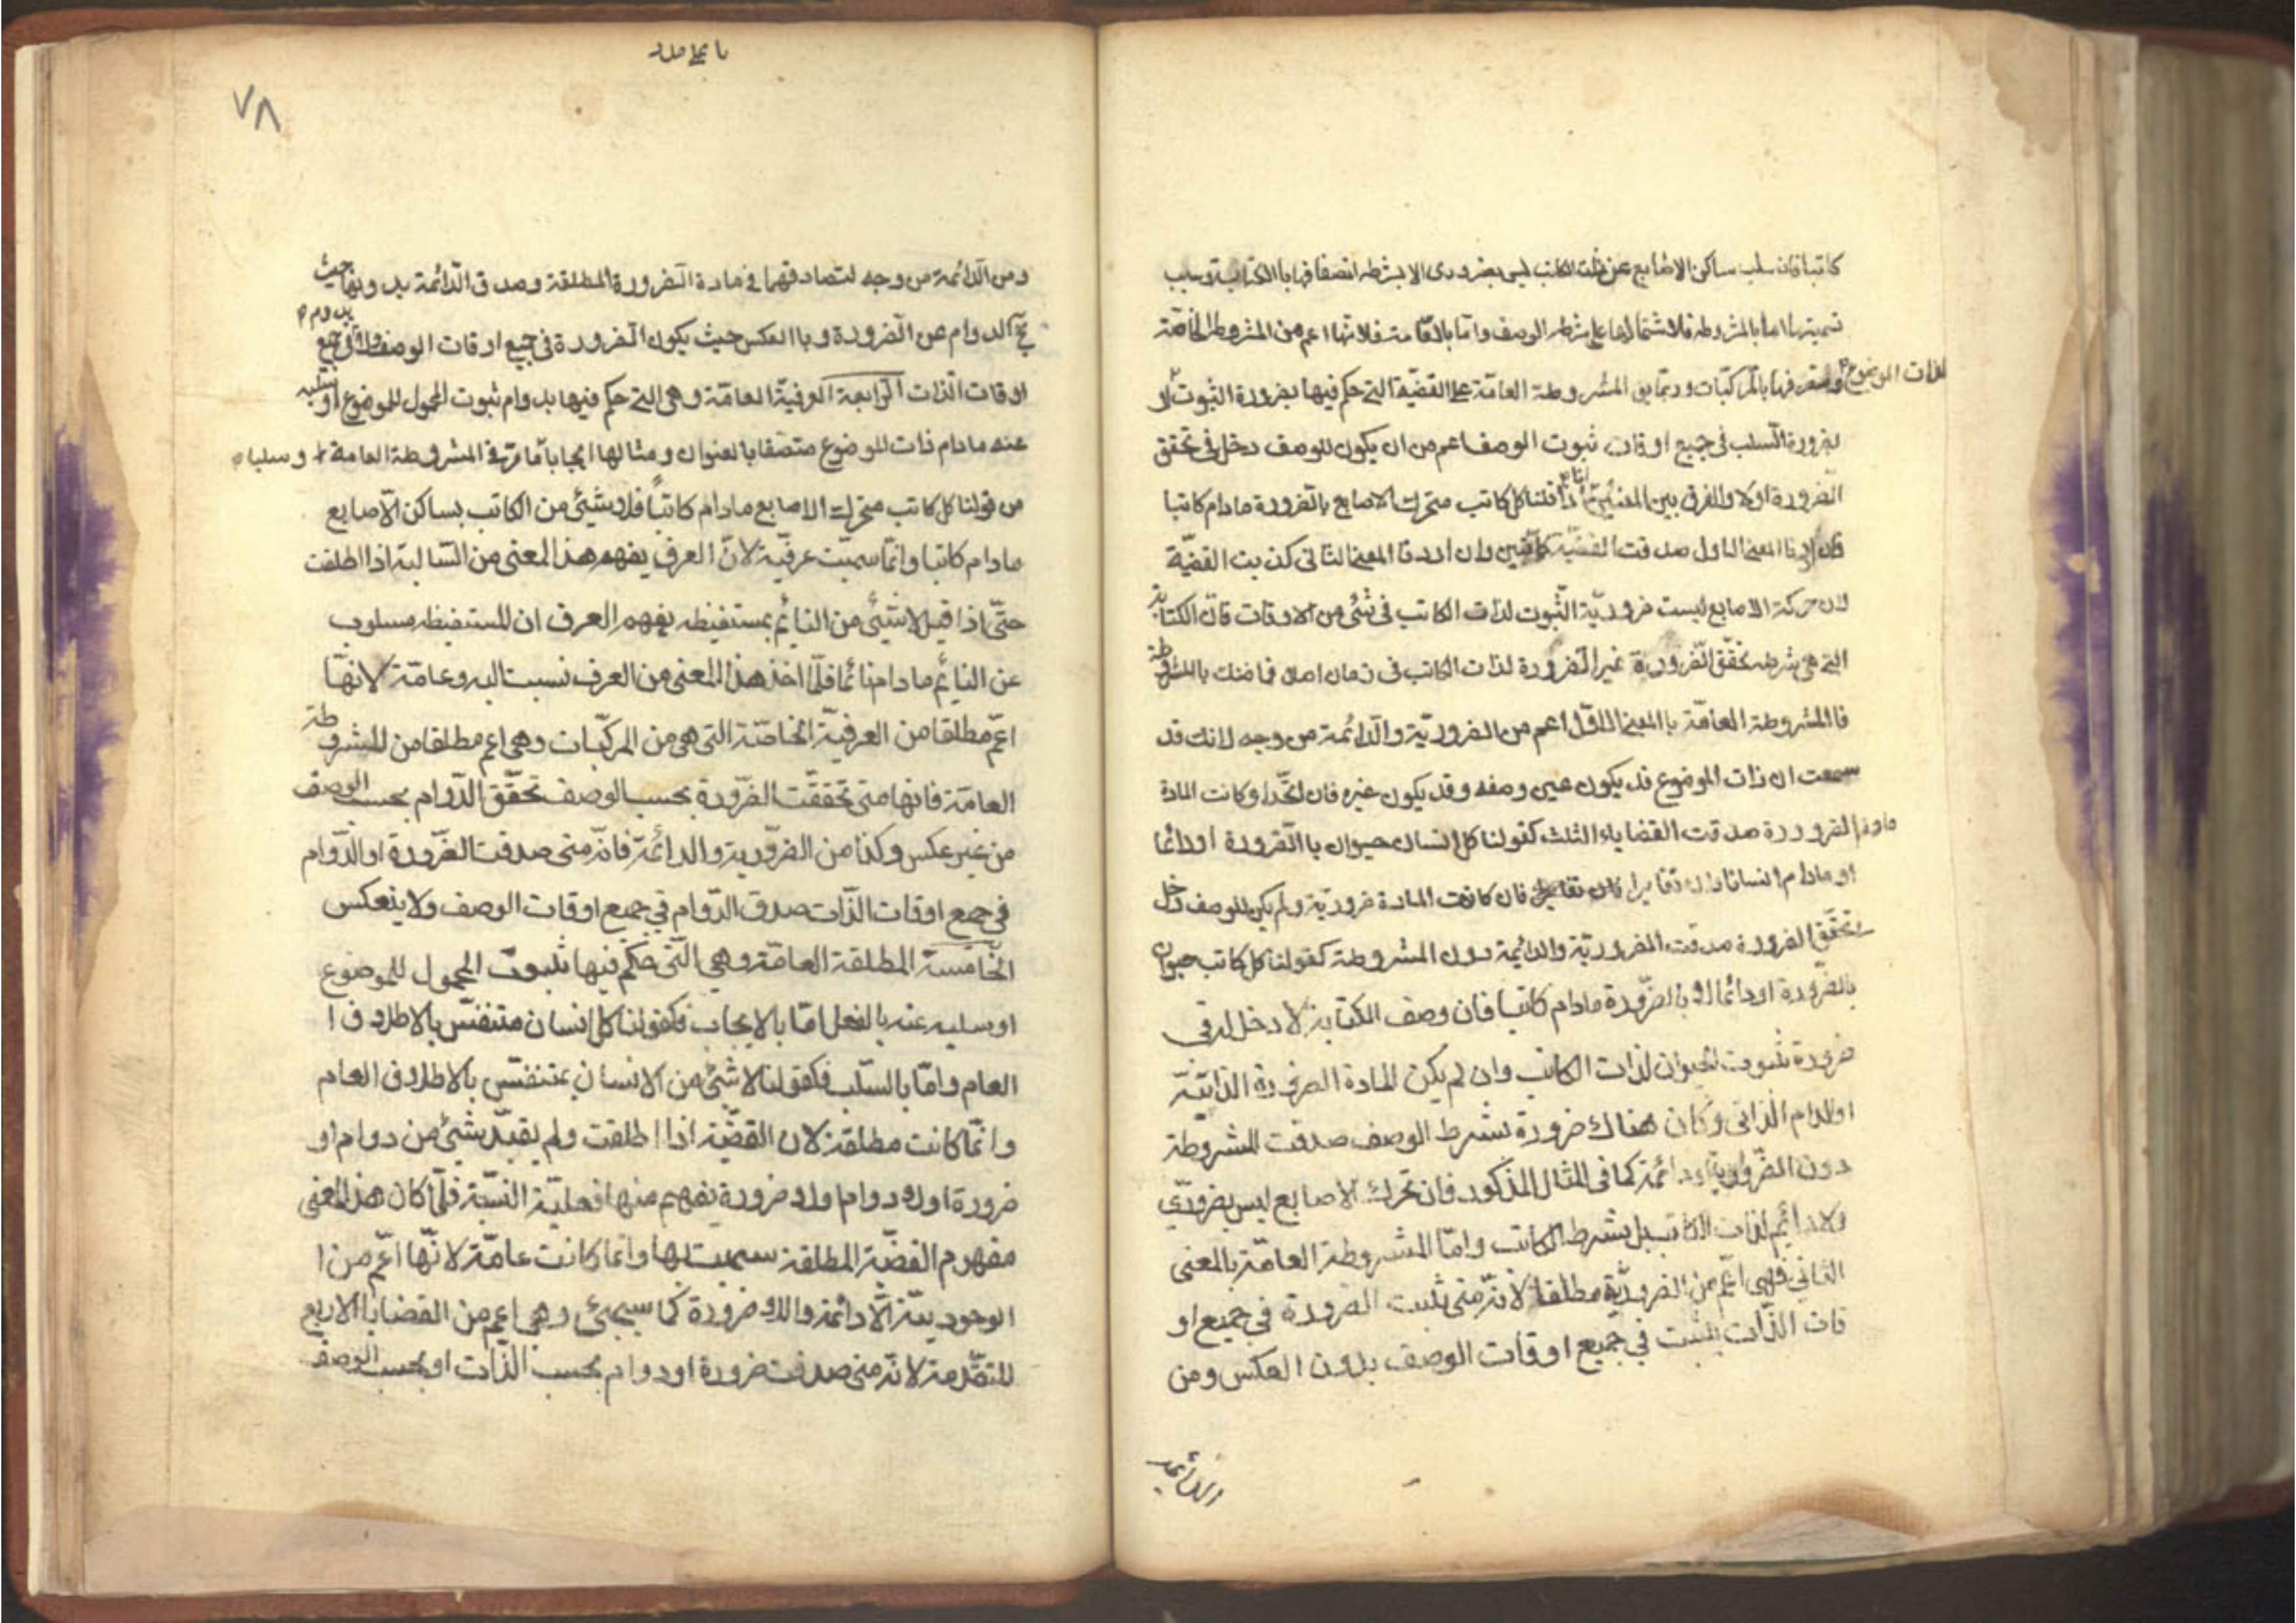 كاتبا فان سلب ساكن الاصابع عن ذات الكاتب ليس بضروری الا بشرط اتصافها باالكتابة وسبب
تسميتها اما بالمشروطة فلاشتمالها على شرط الوصف واما بالعامة فلانها اعم من المشروطة الخاصة
وستعرفها بالمركبات وربما يق المشروطة العامة على القضية التى حكم فيها بضرورة الثبوت او
لذات الموضوع
بضرورة السلب فى جميع اوقات ثبوت الوصف اعم من ان يكون للوصف دخل فى تحقق
الضرورة اولا والفرق بين المعنيين انا اذا قلنا كل كاتب متحرك الاصابع بالضرورة مادام كاتبا
فان اردنا المعنى الاول صدقت القضية وان اردنا المعنى الثانى كذبت القضية
لان حركة الاصابع ليست ضرورية الثبوت لذات الكاتب فى شئ من الاوقات فان الكتابة
التى هى شرط تحقق الضرورة غير الضرورة لذات الكاتب فى زمان اصلا فما ظنك بالمشروطة
فاالمشروطة العامة باالمعنى الاول اعم من الضرورية والدائمة من وجه لانك قد
سمعت ان ذات الموضوع قد يكون عين وصفه وقد يكون غيره فان اتحدا وكانت المادة
مادة الضرورة صدقت القضاياء الثلث كقولنا كل انسان حيوان باالضرورة او دائما
او مادام انسانا وان تغايرا فان كانت المادة ضرورية ولم يكن للوصف دخل
لتحقق الضرورة صدقت الضرورية والدائمة دون المشروطة كقولنا كل كاتب حيوان
بالضرورة او دائما لا بالضرورة مادام كاتبا فان وصف الكتابة لا دخل له فى
ضرورة ثبوت الحيوان لذات الكاتب وان لم يكن المادة الضرورية الذاتية
او الدوام الذاتى وكان هناك ضرورة بشرط الوصف صدقت المشروطة
دون الضرورية او دائمة كما فى المثال المذكور فان تحرك الاصابع ليس بضرورى
ولا دائم لذات الكاتب بل بشرط الكاتب واما المشروطة العامة بالمعنى
الثانى فهى اعم من الضرورية مطلقا لانه متى ثبت الضرورة فى جميع او
قات الذات يثبت فى جميع اوقات الوصف بدون العكس ومن
٧٨
ومن الدائمة من وجه لتصادقهما فى مادة الضرورة المطلقة وصدق الدائمة بدونها حيث
يخ الدوام عن الضرورة وباالعكس حيث يكون الضرورة فى جميع اوقات الوصف ولا يدوم فى جميع
اوقات الذات الرابعة العرفية العامة وهى التى حكم فيها بدوام ثبوت المحمول للموضوع او سلبه
عنه مادام ذات الموضوع متصفا بالعنوان ومثالها ايجابا ما مر فى المشروطة العامة وسلبا
من قولنا كل كاتب متحرك الاصابع مادام كاتبا فلا شئ من الكاتب بساكن الاصابع
مادام كاتبا وانما سميت عرفية لان العرف يفهم هذا المعنى من السالبة اذا اطلقت
حتى اذا قيل لا شئ من النائم بمستقيظ يفهم العرف ان المستقيظ مسلوب
عن النائم مادام نائما فلما اخذ هذا المعنى من العرف نسبت اليه وعامة لانها
اعم مطلقا من العرفية الخاصة التى هى من المركبات وهى اعم مطلقا من المشروطة
العامة فانها متى تحققت الضرورة بحسب الوصف تحقق الدوام بحسب الوصف
من غير عكس وكذا من الضرورية والدائمة فانه متى صدقت الضرورة او الدوام
فى جميع اوقات الذات صدق الدوام فى جميع اوقات الوصف ولا ينعكس
الخامسة المطلقة العامة وهى التى حكم فيها بثبوت المحمول للموضوع
او سلبه عنه بالفعل اما بالايجاب فكقولنا كل انسان متنفس بالاطلاق ا
العام واما بالسلب فكقولنا لا شئ من الانسان بمتنفس بالاطلاق العام
وانما كانت مطلقة لان القضية اذا اطلقت ولم يقيد بشئ من دوام او
ضرورة اولا دوام ولا ضرورة يفهم منها فعلية النسبة فلما كان هذا المعنى
مفهوم القضية المطلقة سميت بها وانما كانت عامة لانها اعم من ا
الوجودية الادائمة واللا ضرورة كما سيجئ وهى اعم من القضايا الاربع
المتقدمة لانه متى صدقت ضرورة او دوام بحسب الذات او بحسب الوصف